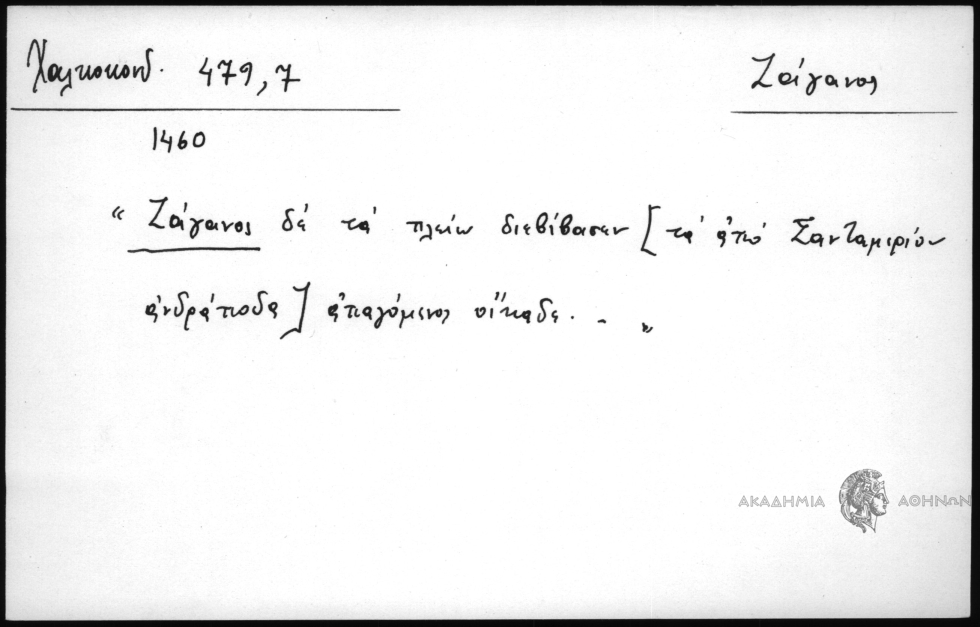 Χαλκοκονδ. 479,7
Ζάγανος
1460
“ Ζάγανος δέ τά πλείω διεβίβασεν [ τά ἀπό Σανταμερίου
ἀνδράποδα ] ἀπαγόμενος οἴκαδε. - „
ΑΚΑΔΗΜΙΑ ΑΘΗΝΩΝ